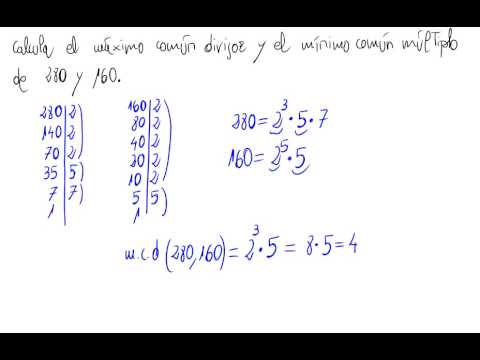 Calcula el máximo común divisor y el mínimo común múltiplo
de 280 y 160.
280 | 2
140 | 2
70 | 2
35 | 5
7 | 7
1 |
160 | 2
80 | 2
40 | 2
20 | 2
10 | 2
5 | 5
1 |
280 = 2³ · 5 · 7
160 = 2⁵ · 5
m.c.d (280, 160) = 2³ · 5 = 8 · 5 = 4